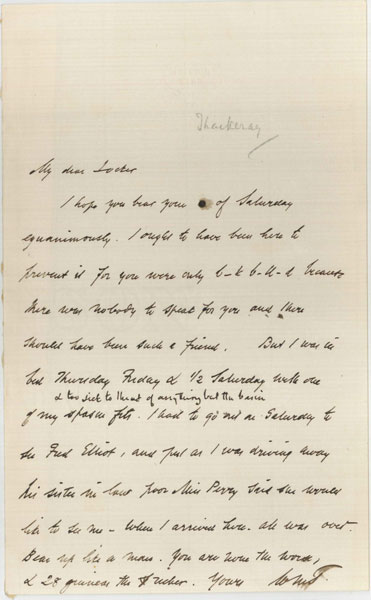 Thackeray
My dear Locker
I hope you bear your ● of Saturday
equanimously. I ought to have been here to
prevent it for you were only b-k b-ll-d because
there was nobody to speak for you and there
should have been such a friend. But I was in
bed Thursday Friday & 1/2 Saturday with one
& too sick to think of anything but the basin
of my spasm fits. I had to go out on Saturday to
see Fred Elliot, and just as I was driving away
his sister in law poor Miss Perry said she would
like to see me - When I arrived here - all was over.
Bear up like a man. You are none the worse,
& 2[?] guineas the richer. Yours WMT